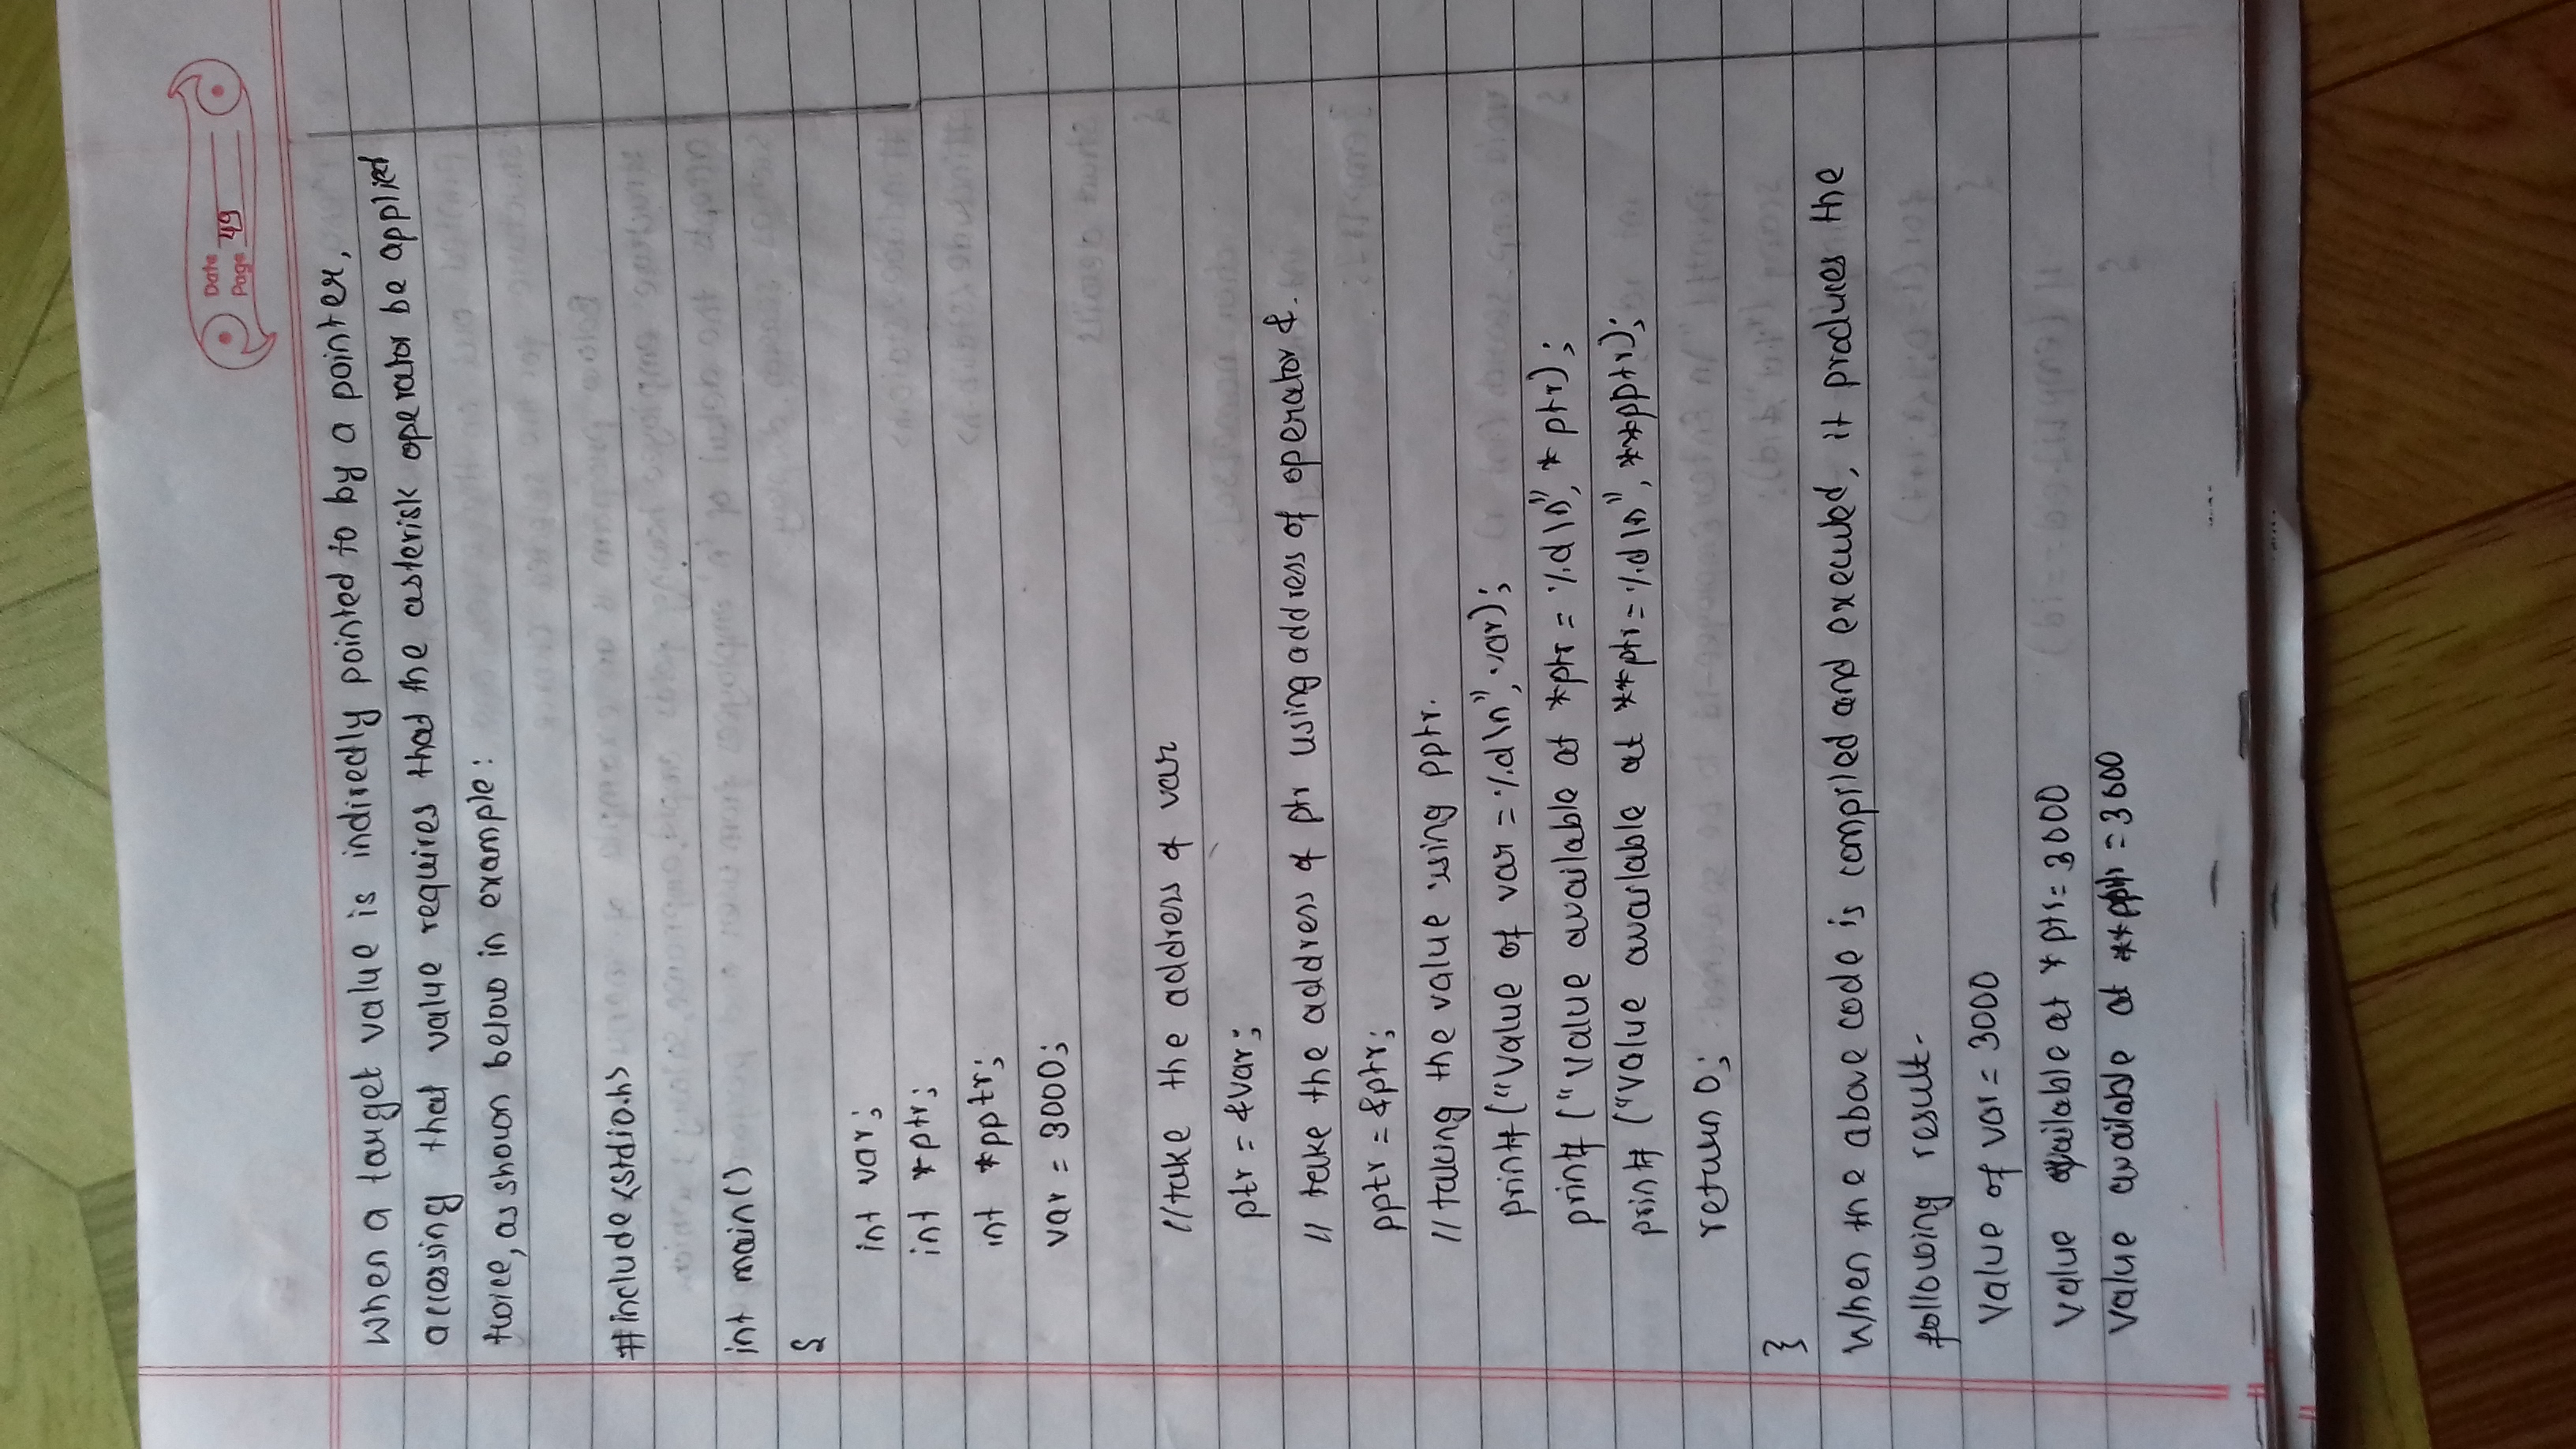 Date
Page 49
When a target value is indirectly pointed to by a pointer,
accessing that value requires that the asterisk operator be applied
twice, as shown below in example:
#include <stdio.h>
int main()
{
int var;
int *ptr;
int *pptr;
var = 3000;
//take the address of var
ptr = &var;
// take the address of ptr using address of operator &.
pptr = &ptr;
// taking the value using pptr.
printf ("Value of var = %d\n", var);
printf ("Value available at *ptr = %d\n", *ptr);
printf ("Value available at **ptr = %d\n", **pptr);
return 0;
}
When the above code is compiled and executed, it produces the
following result-
Value of var = 3000
Value available at *ptr = 3000
Value available at **pptr = 3000